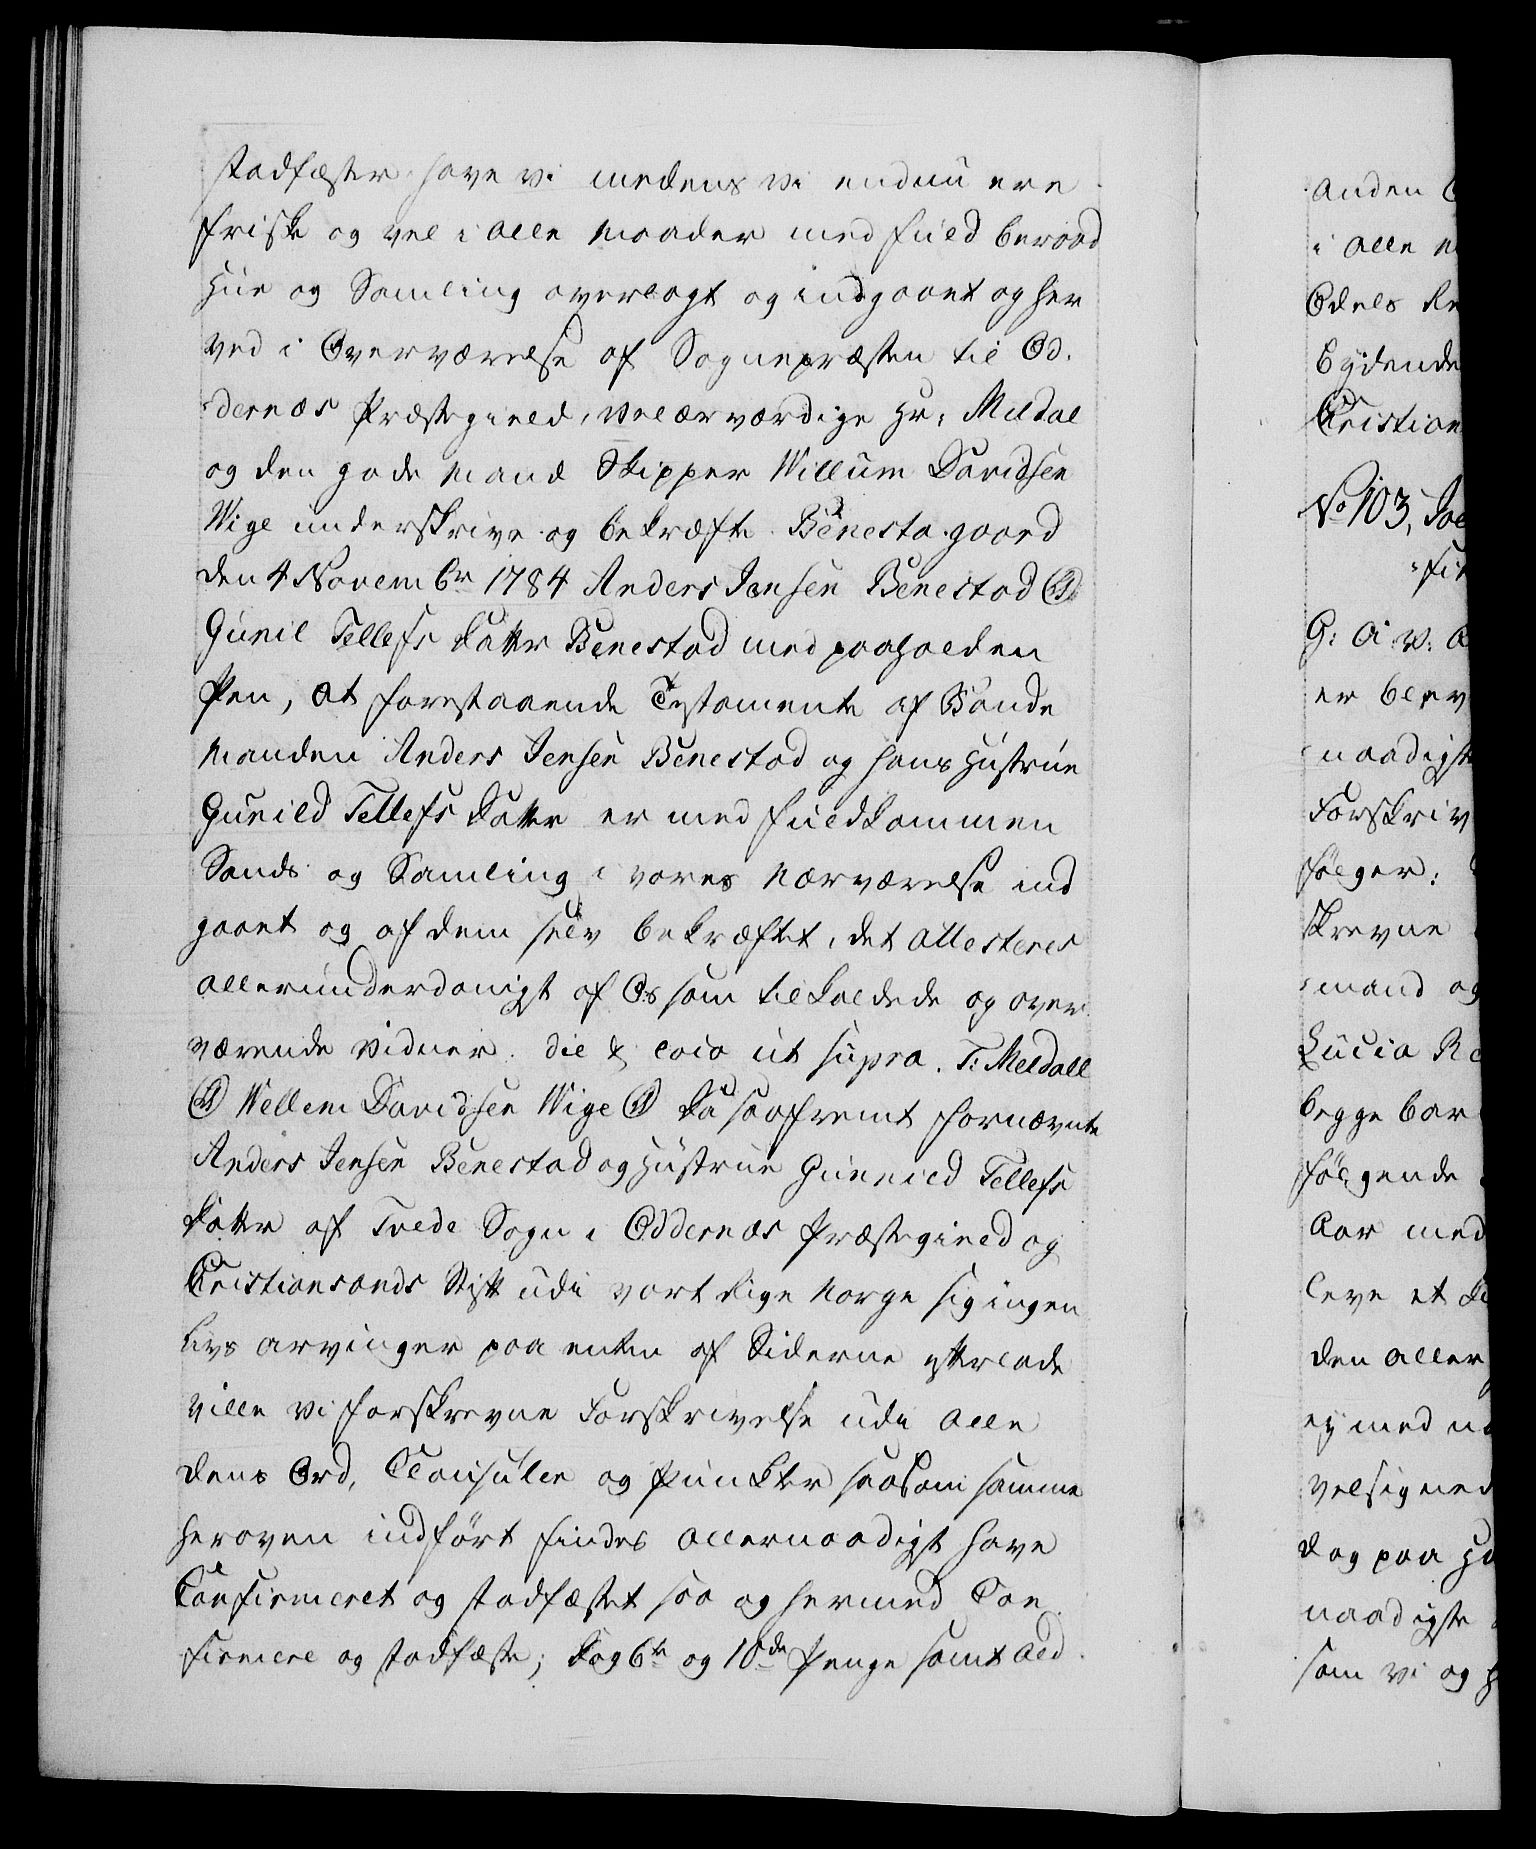 stadfæster have vi medens vi endnu ere
friske og vel i alle Maader med fuld beraad
Hue og Samling overlagt og indgaaet og her
ved i Overværelse af Sognepræsten til Od.
dernæs Præstegield, velærværdige Hr: Meldal
og den gode Mand Skipper Willum Davidsen
Wige underskrive og bekræfte. Benesta gaard
den 4 Novembr 1784 Anders Jensen Benestad
Gunil Tellefs Datter Benestad med paaholden
Pen, at forestaaende Testamente af Bonde
Manden Anders Jensen Benestad og hans Hustrue
Gunild Tellefs Datter er med fuldkommen
Sands og Samling i vores Nærværelse ind
gaaet og af dem selv bekræftet, det attesteres
allerunderdanigt af Os som tilkaldede og over
værende Vidner. die & loco ut supra. T: Meldall
Wellem Davidsen Wige Da saafremt fornævnte
Anders Jensen Benestad og Hustrue Gunnild Tellefs
Datter af Tvede Sogn i Oddernæs Præstegield og
Christiansands Stift udi vort Rige Norge sig ingen
Livs arvinger paa enten af Siderne efterlade
ville vi forskrevne Forskrivelse udi alle
dens Ord, Clausuler og Puncter saasom samme
heroven indført findes allernaadigst have
Confirmeret og stadfæstet saa og hermed Con
firmere og stadfæste; dog 6te og 10de Penge samt Ald
anden
i alle
Odels
bydende
Christian
No 103,
G: A: V:
er blev
naadigst
Forskriv
følger:
skrevne
mand og
Lucia
begge bar
følgende
Aar med
leve et
den aller
ey med
velsignet
dog paa
naadigste
som vi og